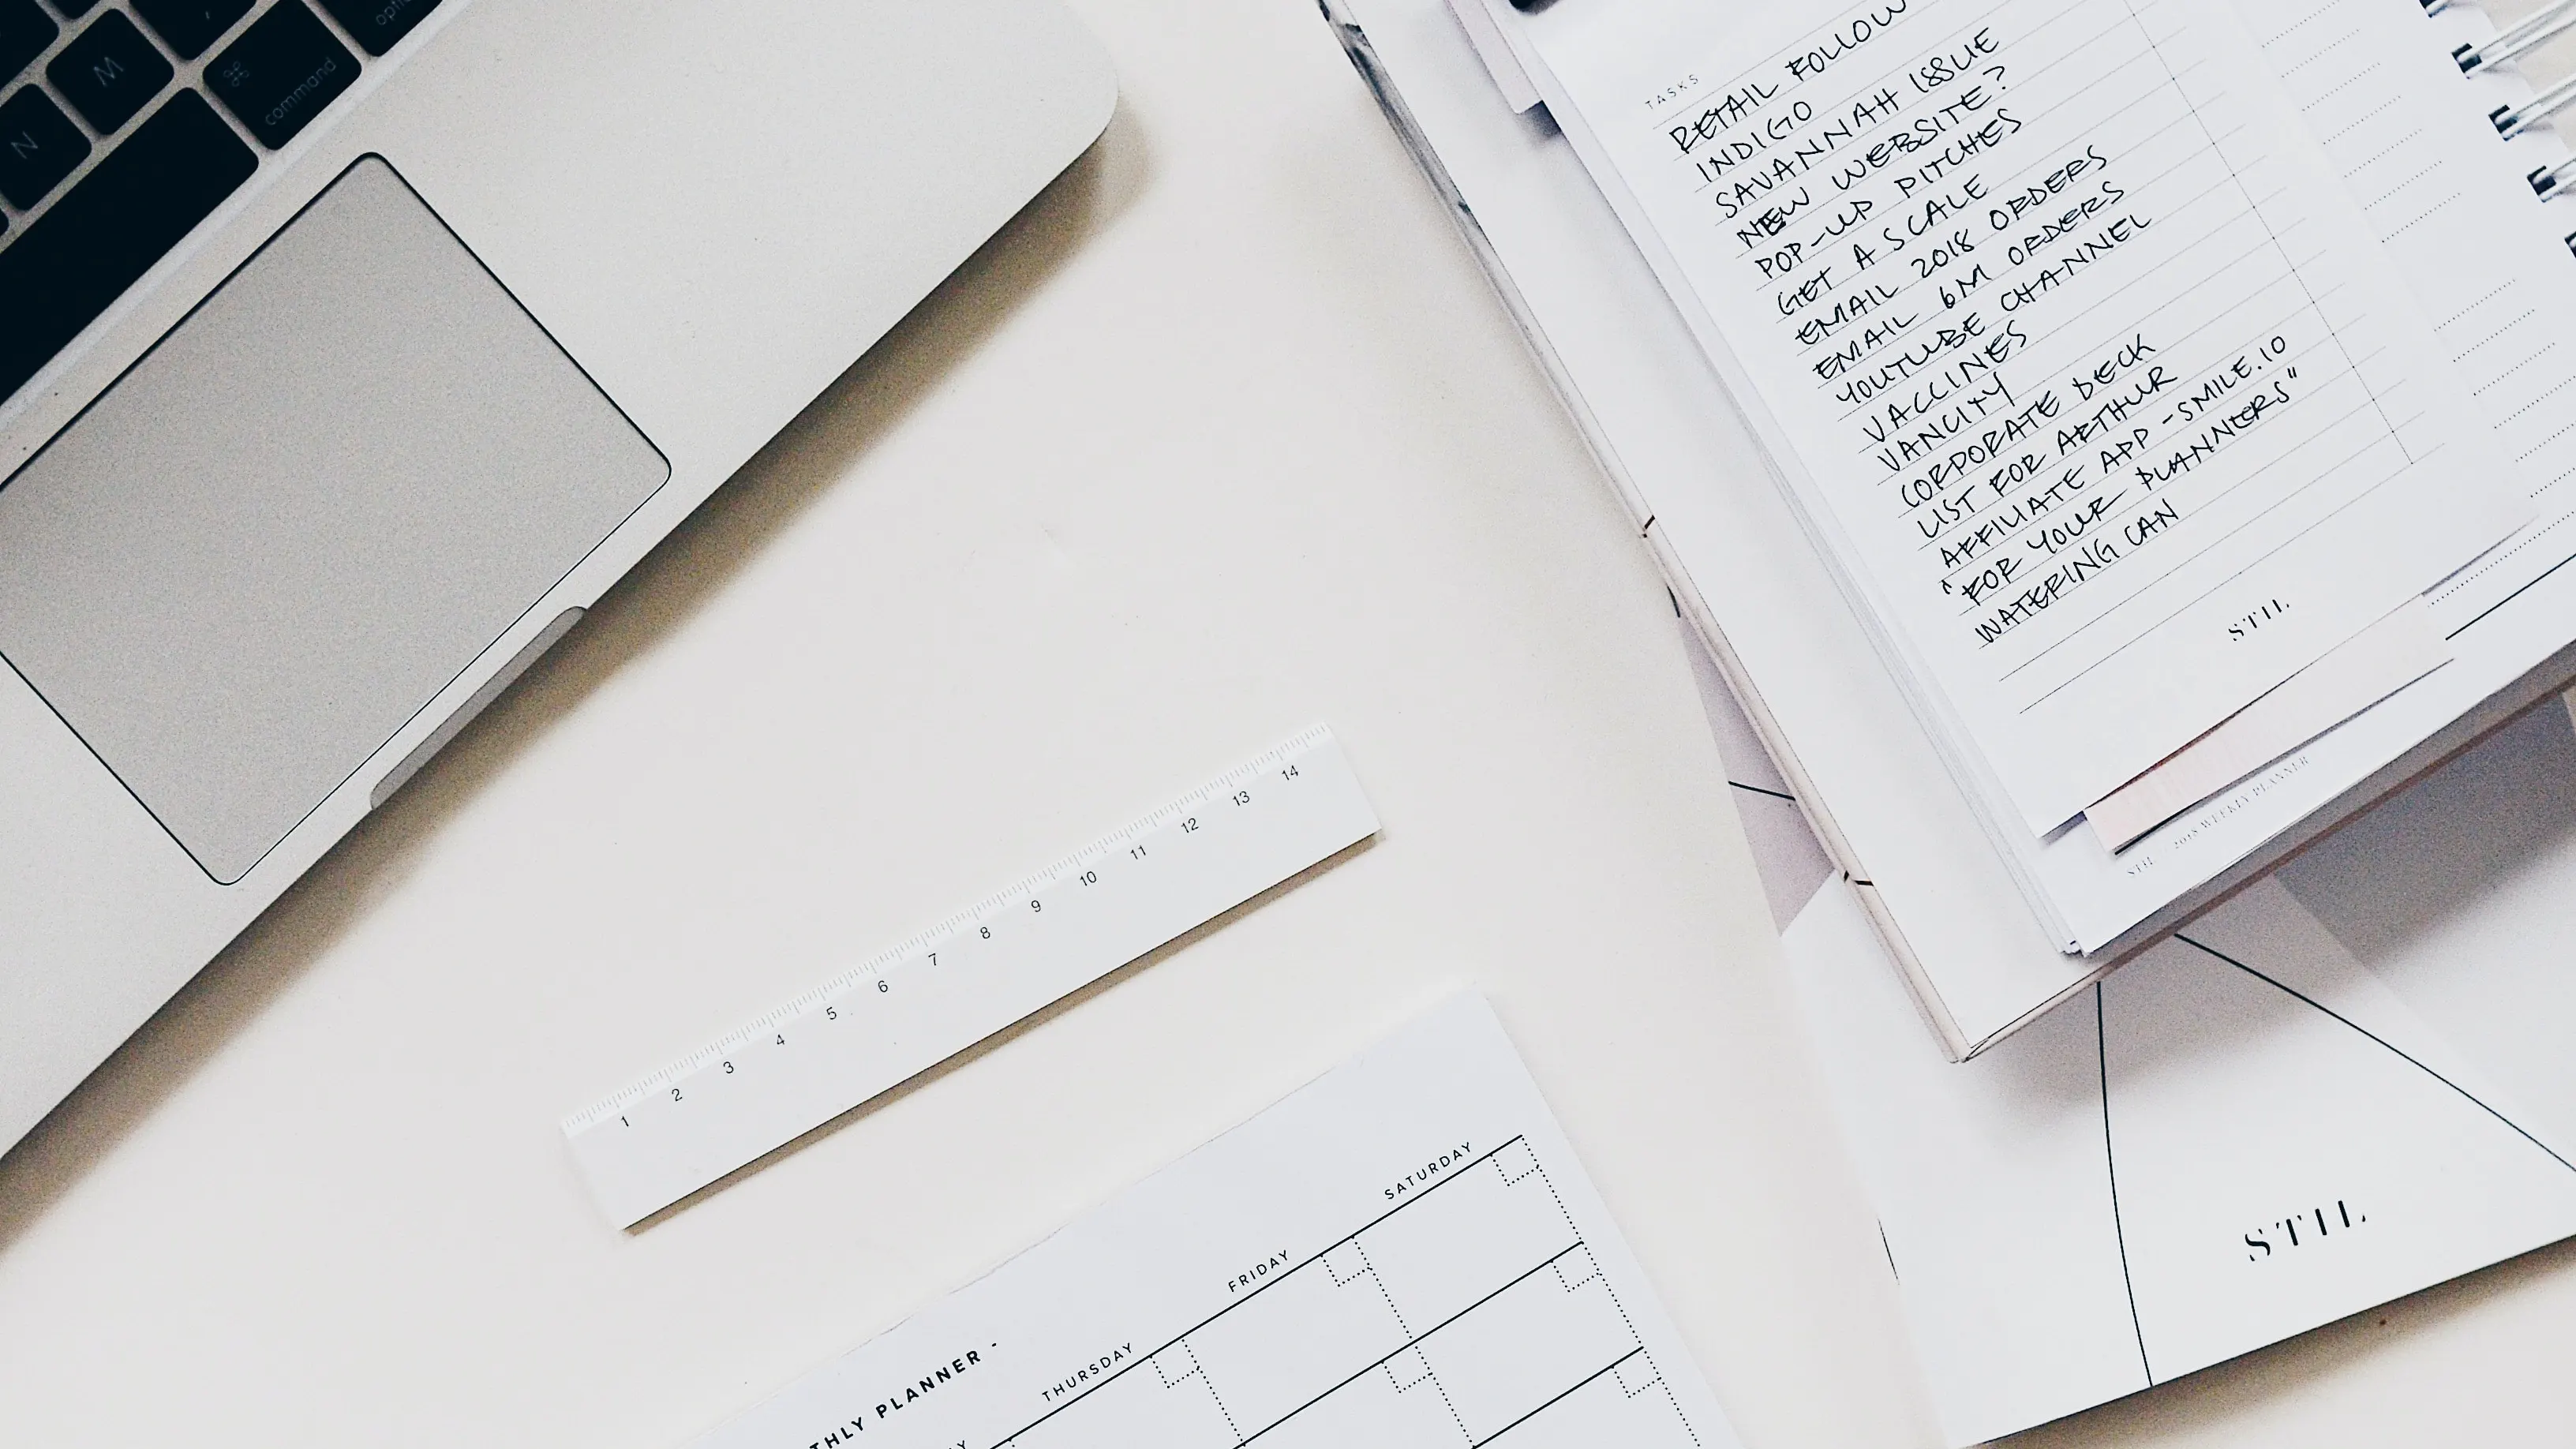 option
M
⌘
command
N
TASKS
RETAIL FOLLOW
INDIGO
SAVANNAH ISSUE
NEW WEBSITE?
POP-UP PITCHES
GET A SCALE
EMAIL 2018 ORDERS
EMAIL 6M ORDERS
YOUTUBE CHANNEL
VACCINES
VANCITY
CORPORATE DECK
LIST FOR ARTHUR
AFFILIATE APP - SMILE.IO
"FOR YOUR PLANNERS"
WATERING CAN
STIL
STIL 2018 WEEKLY PLANNER
1 2 3 4 5 6 7 8 9 10 11 12 13 14
THLY PLANNER -
THURSDAY FRIDAY SATURDAY
STIL